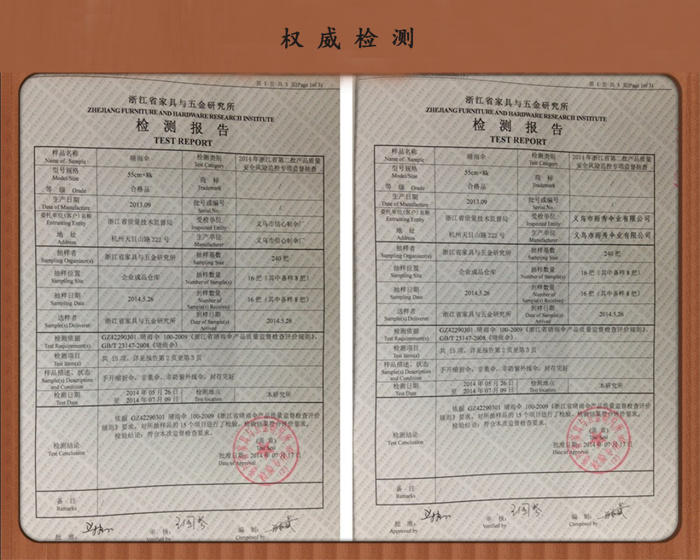 权威检测
第 1 页 共 3 页(Page 1of 3)
浙江省家具与五金研究所
ZHEJIANG FURNITURE AND HARDWARE RESEARCH INSTITUTE
检测报告
TEST REPORT
样品名称 晴雨伞 检测类别 2014年浙江省第二批产品质量
Name of Sample Test Category 安全风险监控专项监督抽查
型号规格 55cm×8k 商 标
Model/Size Trademark
等 级 Grade 合格品
生产日期 2013.09 批号或编号
Date of Manufacture Serial No.
委托单位(客户)名称 浙江省质量技术监督局 受检单位
Entrusting Entity Inspected Entity
地 址 杭州天目山路222号 生产单位
Address Manufacturer
抽样者 浙江省家具与五金研究所 抽样基数 240把
Sampling Organizer(s) Sampling Size
抽样位置 企业成品仓库 抽样数量 16把(其中备样8把)
Sampling Site Number of Sample(s)
抽样日期 2014.5.26 到样数量 16把(其中备样8把)
Sampling Date Number of Sample(s) Received
送样者 浙江省家具与五金研究所 到样日期 2014.5.26
Sample(s) Deliverer Date of Sample(s) Arrived
检测依据 GZ42290301 晴雨伞 100-2009《浙江省晴雨伞产品质量监督检查评价规则》,
Test Requirement(s) GB/T 23147-2008《晴雨伞》
检测项目 共 15 项,详见报告第2页至第3页
Test Item(s)
样品描述、状态 手开缩折伞,非紫外线伞,封存完好
Sample(s) Description and Condition
检测日期 2014年05月26日 检测地点 本研究所
Test Date 至 2014年07月09日 Test location
检测结论 依据 GZ42290301 晴雨伞 100-2009《浙江省晴雨伞产品质量监督检查评价
Test Conclusion 规则》要求,对所抽样品的15个项目进行了检验,检验结果整体评价要求。
检验结论:符合本次监督检查要求。
(盖 章)
批准日期 2014年07月17日
Date of Approval
备 注
Remarks
批 准: 审 核: 编 制:
Verified by Composed by
第 1 页 共 3 页(Page 1of 3)
浙江省家具与五金研究所
ZHEJIANG FURNITURE AND HARDWARE RESEARCH INSTITUTE
检测报告
TEST REPORT
样品名称 晴雨伞 检测类别 2014年浙江省第二批产品质量
Name of Sample Test Category 安全风险监控专项监督抽查
型号规格 55cm×8k 商 标
Model/Size Trademark
等 级 Grade 合格品
生产日期 2013.09 批号或编号
Date of Manufacture Serial No.
委托单位(客户)名称 浙江省质量技术监督局 受检单位 义乌市雨秀伞业有限公司
Entrusting Entity Inspected Entity
地 址 杭州天目山路222号 生产单位 义乌市雨秀伞业有限公司
Address Manufacturer
抽样者 浙江省家具与五金研究所 抽样基数 240把
Sampling Organizer(s) Sampling Size
抽样位置 企业成品仓库 抽样数量 16把(其中备样8把)
Sampling Site Number of Sample(s)
抽样日期 2014.5.26 到样数量 16把(其中备样8把)
Sampling Date Number of Sample(s) Received
送样者 浙江省家具与五金研究所 到样日期 2014.5.26
Sample(s) Deliverer Date of Sample(s) Arrived
检测依据 GZ42290301 晴雨伞 100-2009《浙江省晴雨伞产品质量监督检查评价规则》,
Test Requirement(s) GB/T 23147-2008《晴雨伞》
检测项目 共 15 项,详见报告第2页至第3页
Test Item(s)
样品描述、状态 手开缩折伞,非紫外线伞,封存完好
Sample(s) Description and Condition
检测日期 2014年05月26日 检测地点 本研究所
Test Date 至 2014年07月09日 Test location
检测结论 依据 GZ42290301 晴雨伞 100-2009《浙江省晴雨伞产品质量监督检查评价
Test Conclusion 规则》要求,对所抽样品的15个项目进行了检验,
检验结论:符合本次监督检查要求。
(盖 章)
批准日期 2014年07月17日
Date of Approval
备 注
Remarks
批 准: 审 核: 编 制:
Approved by Verified by Composed by